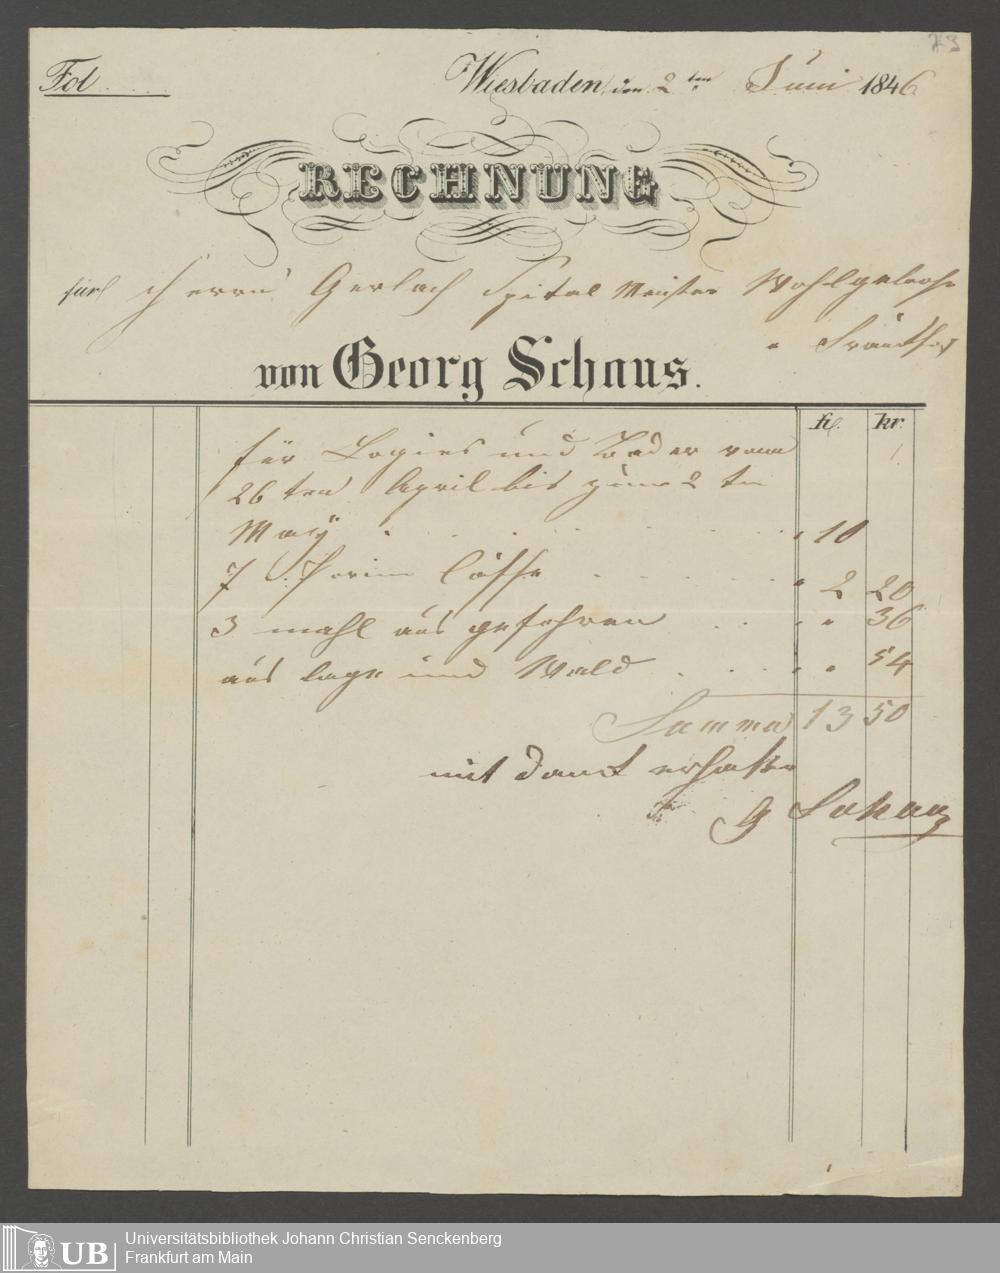 73
Fol. Wiesbaden, den 2ten Juni 1846
RECHNUNG
für Herrn Gerlach Spital Meister Wohlgebohr
" Franckfort
von Georg Schaus.
fl. kr.
für Logies und Bäder vom
26 ten April bis zum 2 ten
May . . . . . . . " 10
7 Porion Caffe . . . . . " 2 20
3 mahl aus gefahren . . . " " 36
aus lage und Wald . . . . " " 54
Summa 13 50
mit Dank erhalten
G Schaus
UB
Universitätsbibliothek Johann Christian Senckenberg
Frankfurt am Main